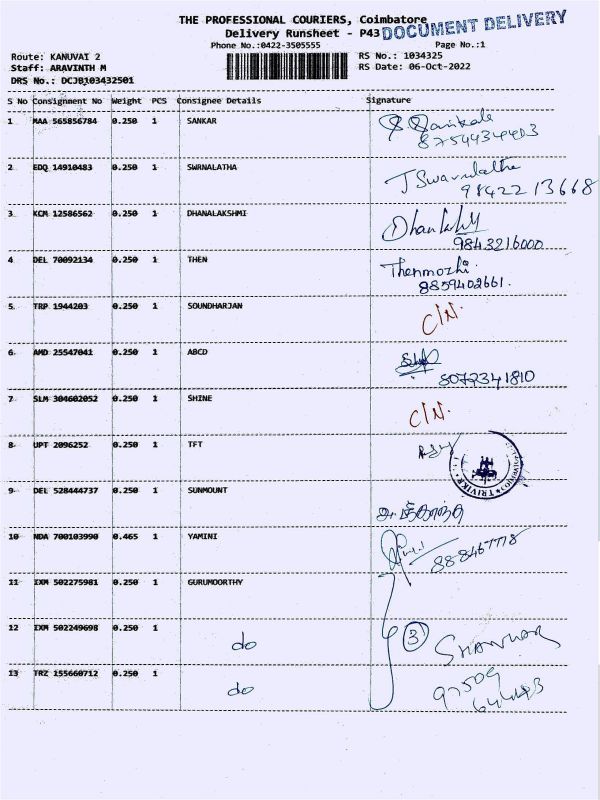 THE PROFESSIONAL COURIERS, Coimbatore
DOCUMENT DELIVERY
Delivery Runsheet - P43
Phone No.:0422-3505555
Page No.:1
Route: KANUVAI 2
RS No.: 1034325
Staff: ARAVINTH M
RS Date: 06-Oct-2022
DRS No.: DCJB103432501
S No Consignment No Weight PCS Consignee Details Signature
1 MAA 565856784 0.250 1 SANKAR
8754434403
2 EDQ 14910483 0.250 1 SWRNALATHA J Swarnalatha
98422 13668
3 KCM 12586562 0.250 1 DHANALAKSHMI
9843216000
4 DEL 70092134 0.250 1 THEN Thenmozhi
8859402661.
5 TRP 1944203 0.250 1 SOUNDHARJAN C/N.
6 AMD 25547041 0.250 1 ABCD
8072341810
7 SLM 304602052 0.250 1 SHINE C/N.
8 UPT 2096252 0.250 1 TFT
9 DEL 528444737 0.250 1 SUNMOUNT
10 NDA 700103990 0.465 1 YAMINI
11 IXM 502275981 0.250 1 GURUMOORTHY
12 IXM 502249698 0.250 1 do 3 SHANKAR
13 TRZ 155660712 0.250 1 do 97509